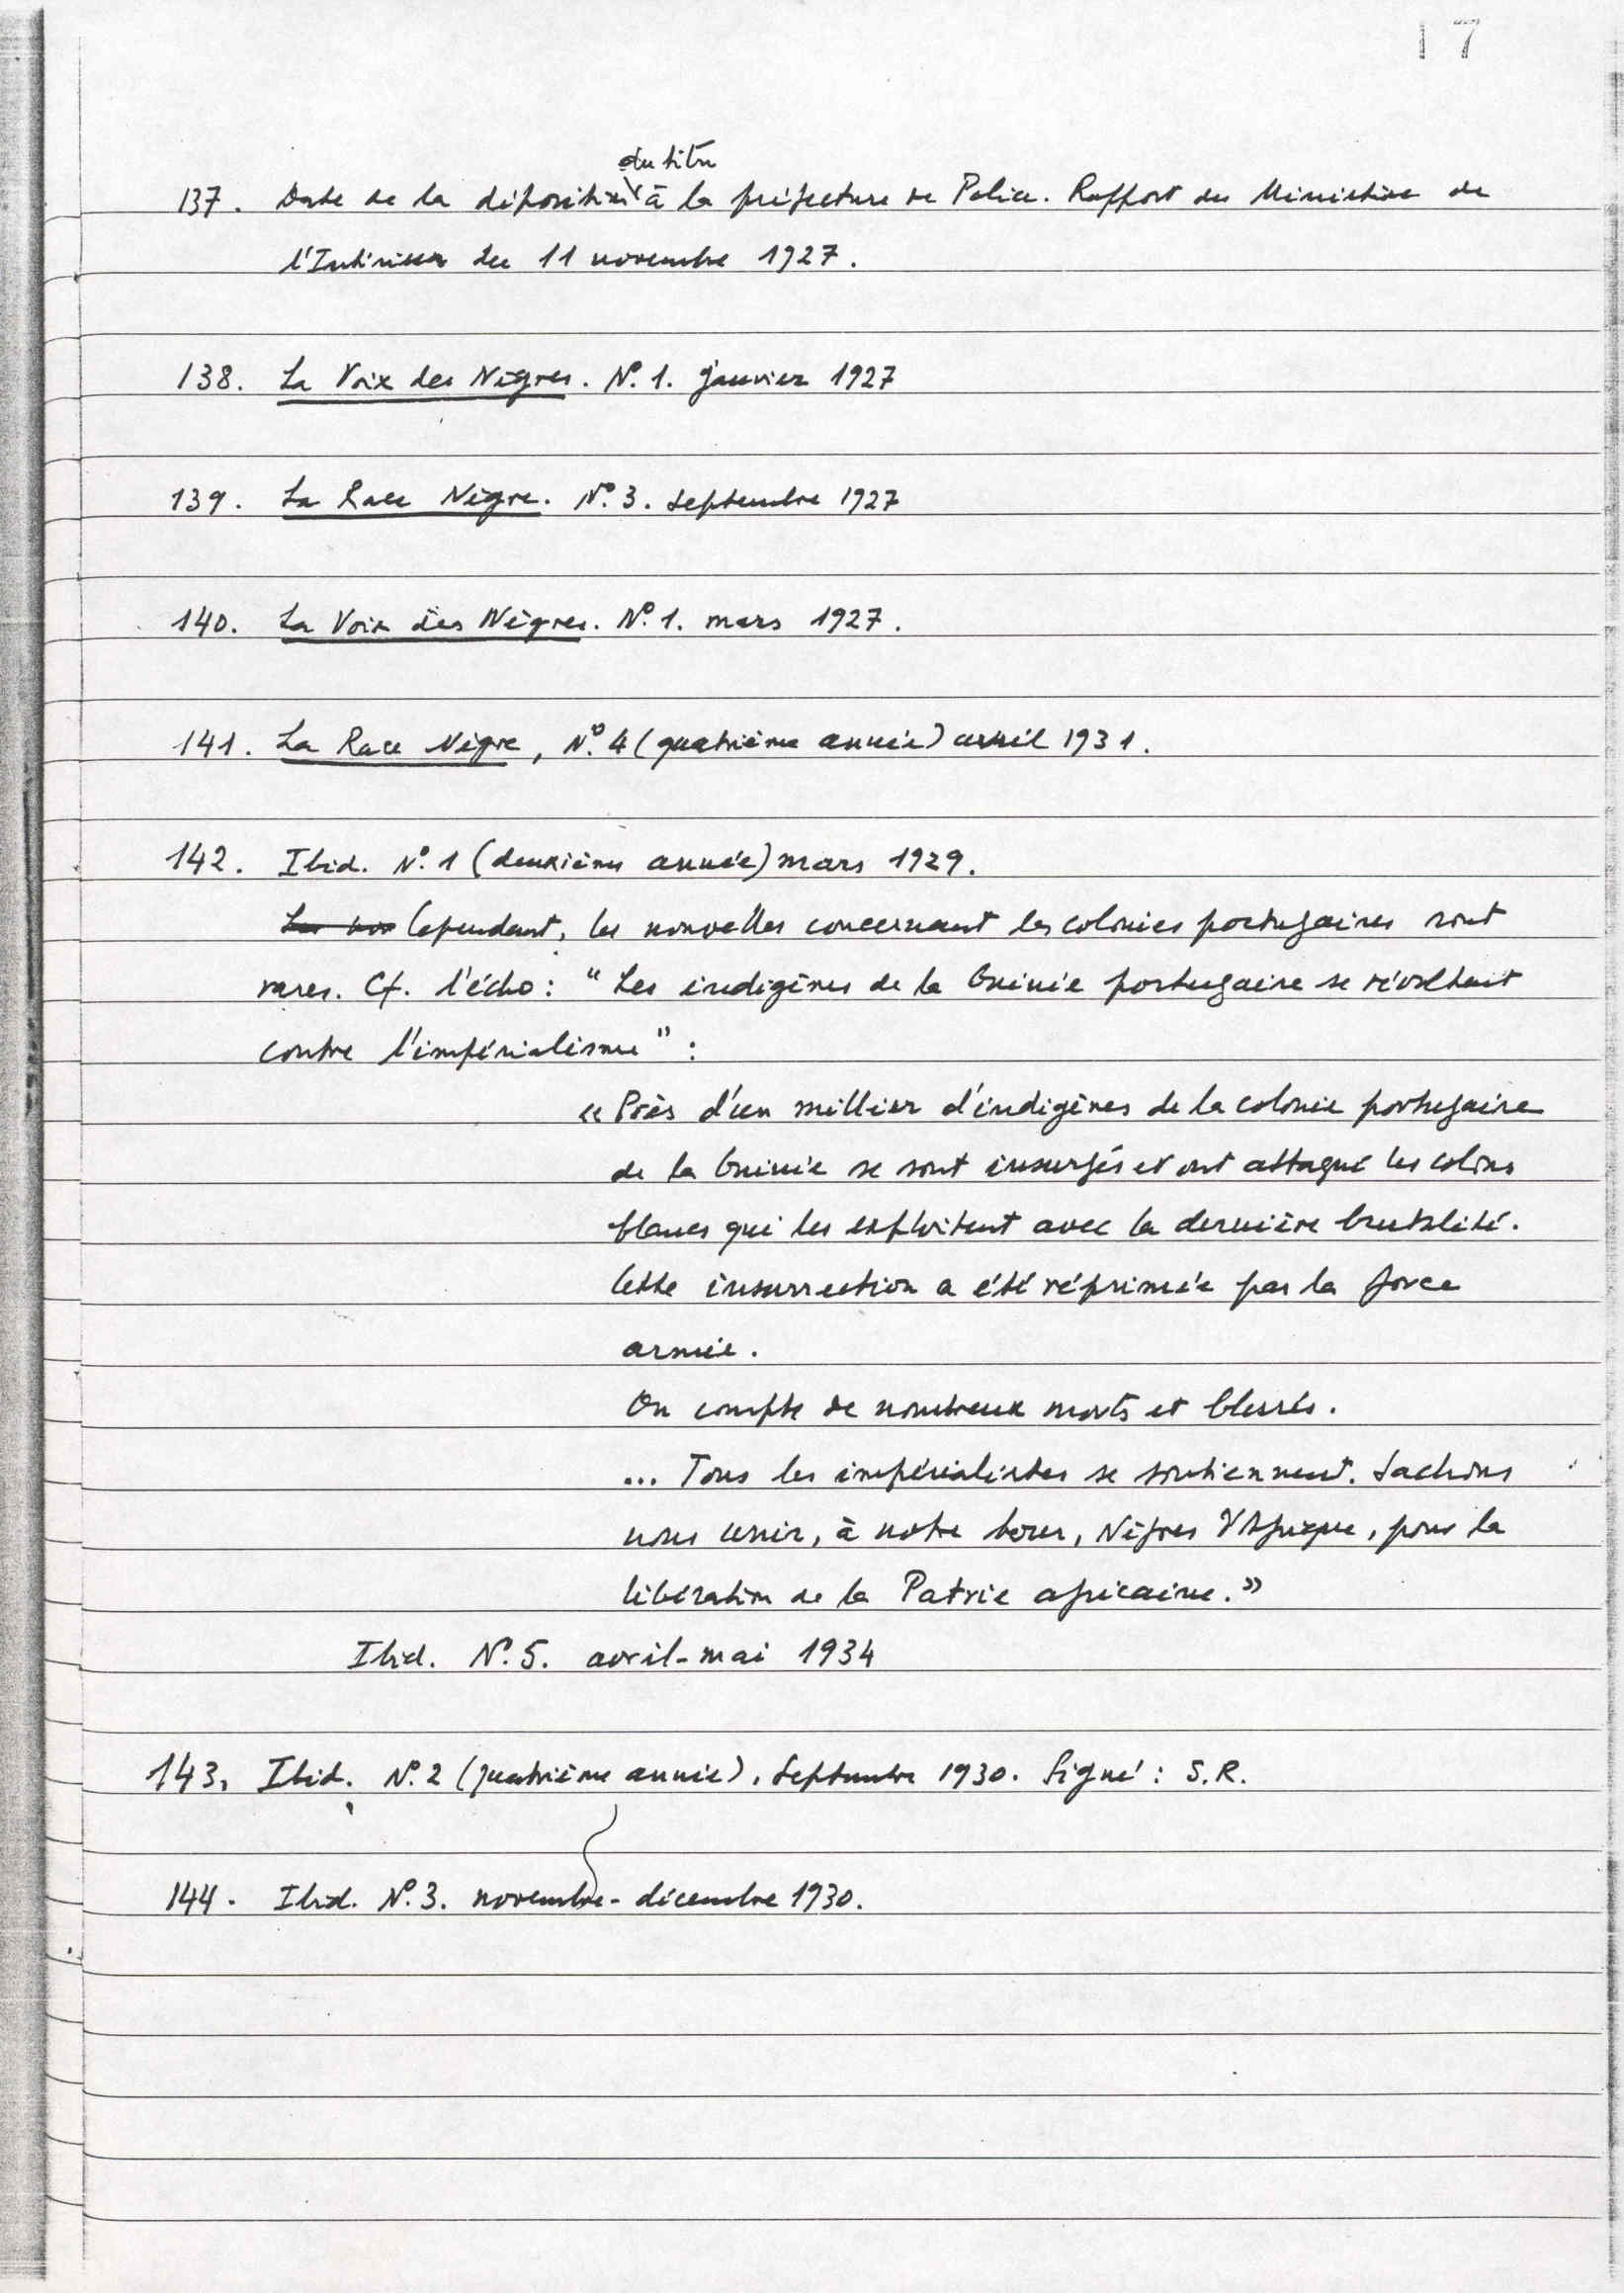 17
du titre
137. Date de la déposition à la préfecture de Police. Rapport du Ministère de
l'Intérieur du 11 novembre 1927.
138. La Voix des Nègres. Nº. 1. janvier 1927
139. La Race Nègre. Nº. 3. septembre 1927
140. La Voix des Nègres. Nº. 1. mars 1927.
141. La Race Nègre, Nº. 4 (quatrième année) avril 1931.
142. Ibid. Nº. 1 (deuxième année) mars 1929.
Cependant, les nouvelles concernant les colonies portugaises sont
rares. Cf. l'écho: "Les indigènes de la Guinée portugaise se révoltent
contre l'impérialisme":
«Près d'un millier d'indigènes de la colonie portugaise
de la Guinée se sont insurgés et ont attaqué les colons
blancs qui les exploitent avec la dernière brutalité.
Cette insurrection a été réprimée par la force
armée.
On compte de nombreux morts et blessés.
... Tous les impérialistes se soutiennent. Sachons
nous unir, à notre tour, Nègres d'Afrique, pour la
libération de la Patrie africaine.»
Ibid. Nº. 5. avril-mai 1934
143. Ibid. Nº. 2 (quatrième année), septembre 1930. Signé: S.R.
144. Ibid. Nº. 3. novembre-décembre 1930.